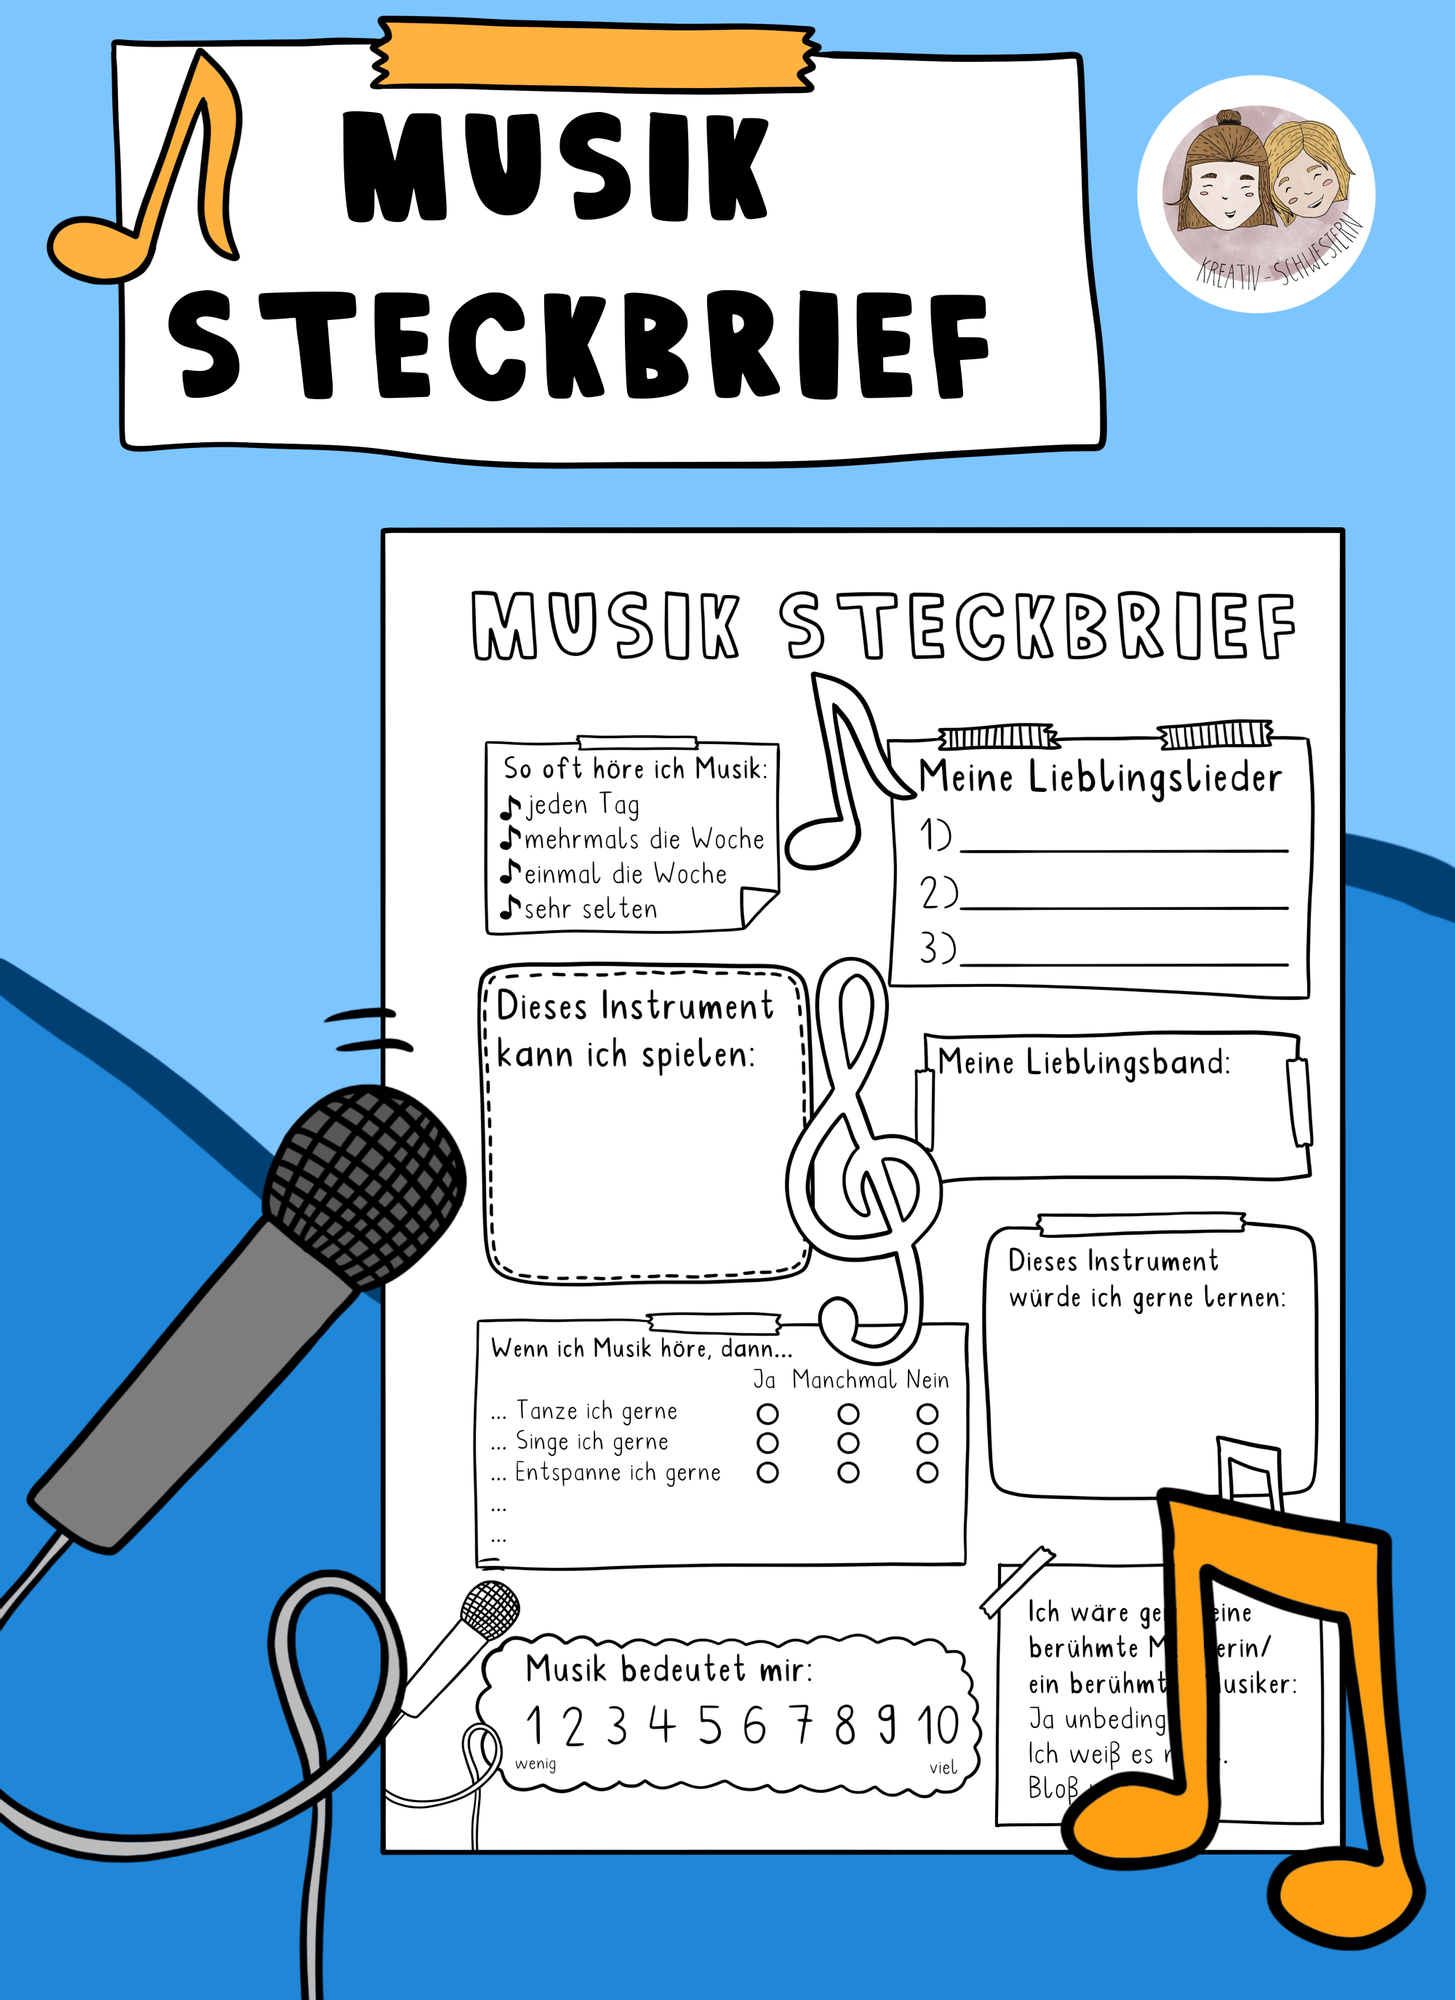 MUSIK
STECKBRIEF
KREATIV-SCHWESTERN
MUSIK STECKBRIEF
So oft höre ich Musik:
jeden Tag
mehrmals die Woche
einmal die Woche
sehr selten
Meine Lieblingslieder
1)
2)
3)
Dieses Instrument
kann ich spielen:
Meine Lieblingsband:
Dieses Instrument
würde ich gerne lernen:
Wenn ich Musik höre, dann...
Ja Manchmal Nein
... Tanze ich gerne
... Singe ich gerne
... Entspanne ich gerne
...
...
Musik bedeutet mir:
1 2 3 4 5 6 7 8 9 10
wenig viel
Ich wäre
berühmte
ein berühmt
Ja
Ich weiß es
Bloß